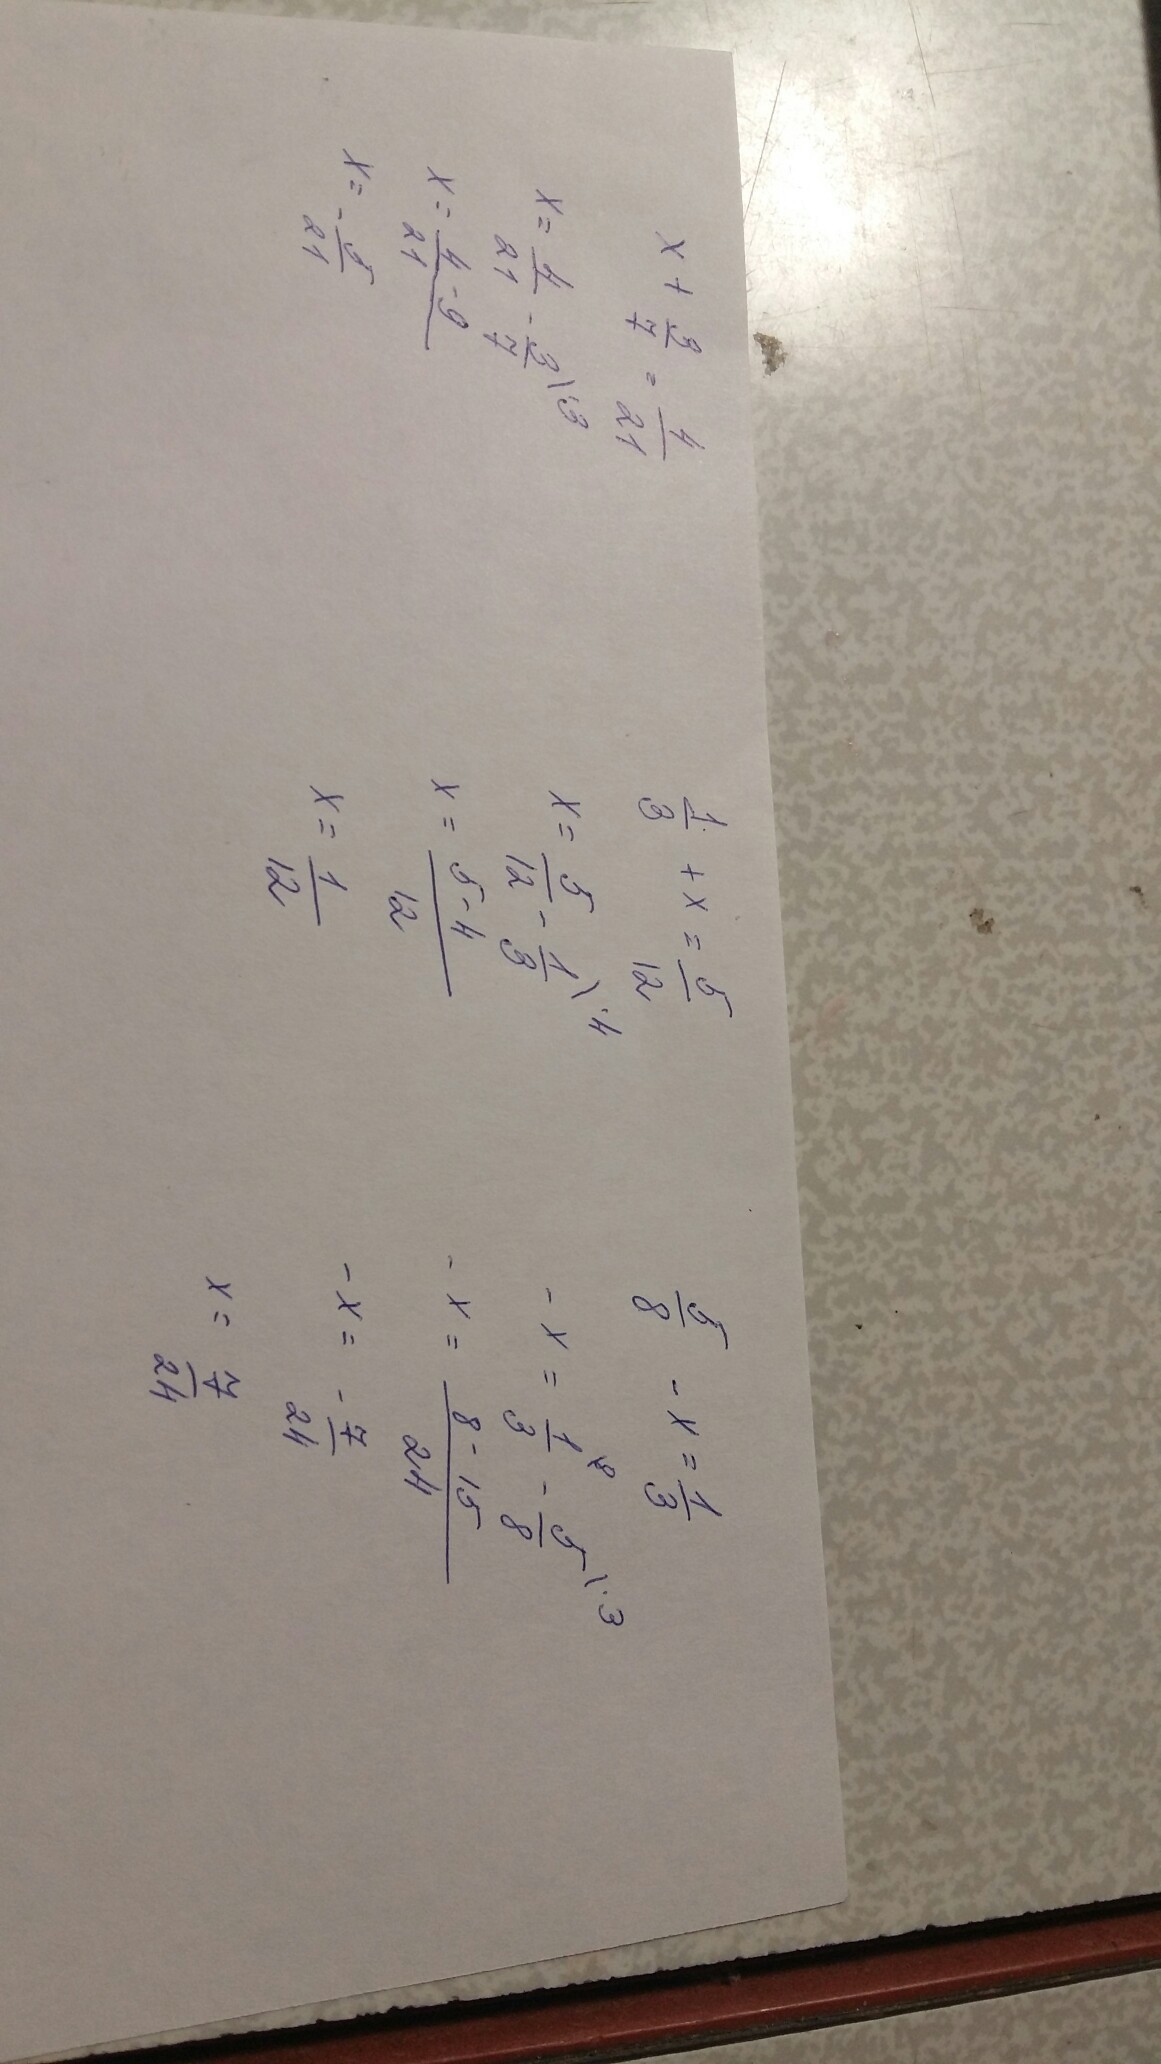 x + 3/7 = 4/21
x = 4/21 - 3/7 \·3
x = 4-9/21
x = - 5/21
1/3 + x = 5/12
x = 5/12 - 1/3 \·4
x = 5-4/12
x = 1/12
5/8 - x = 1/3
- x = 1/3 \8 - 5/8 \·3
- x = 8-15/24
- x = - 7/24
x = 7/24